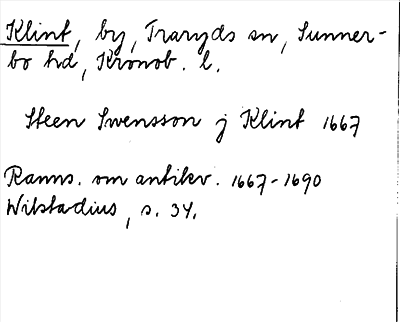 Klint, by, Traryds sn, Sunner-
bo hd, Kronob. l.
Steen Swensson j Klint 1667
Ranns. om antikv. 1667-1690
Wibstadius, s. 34.